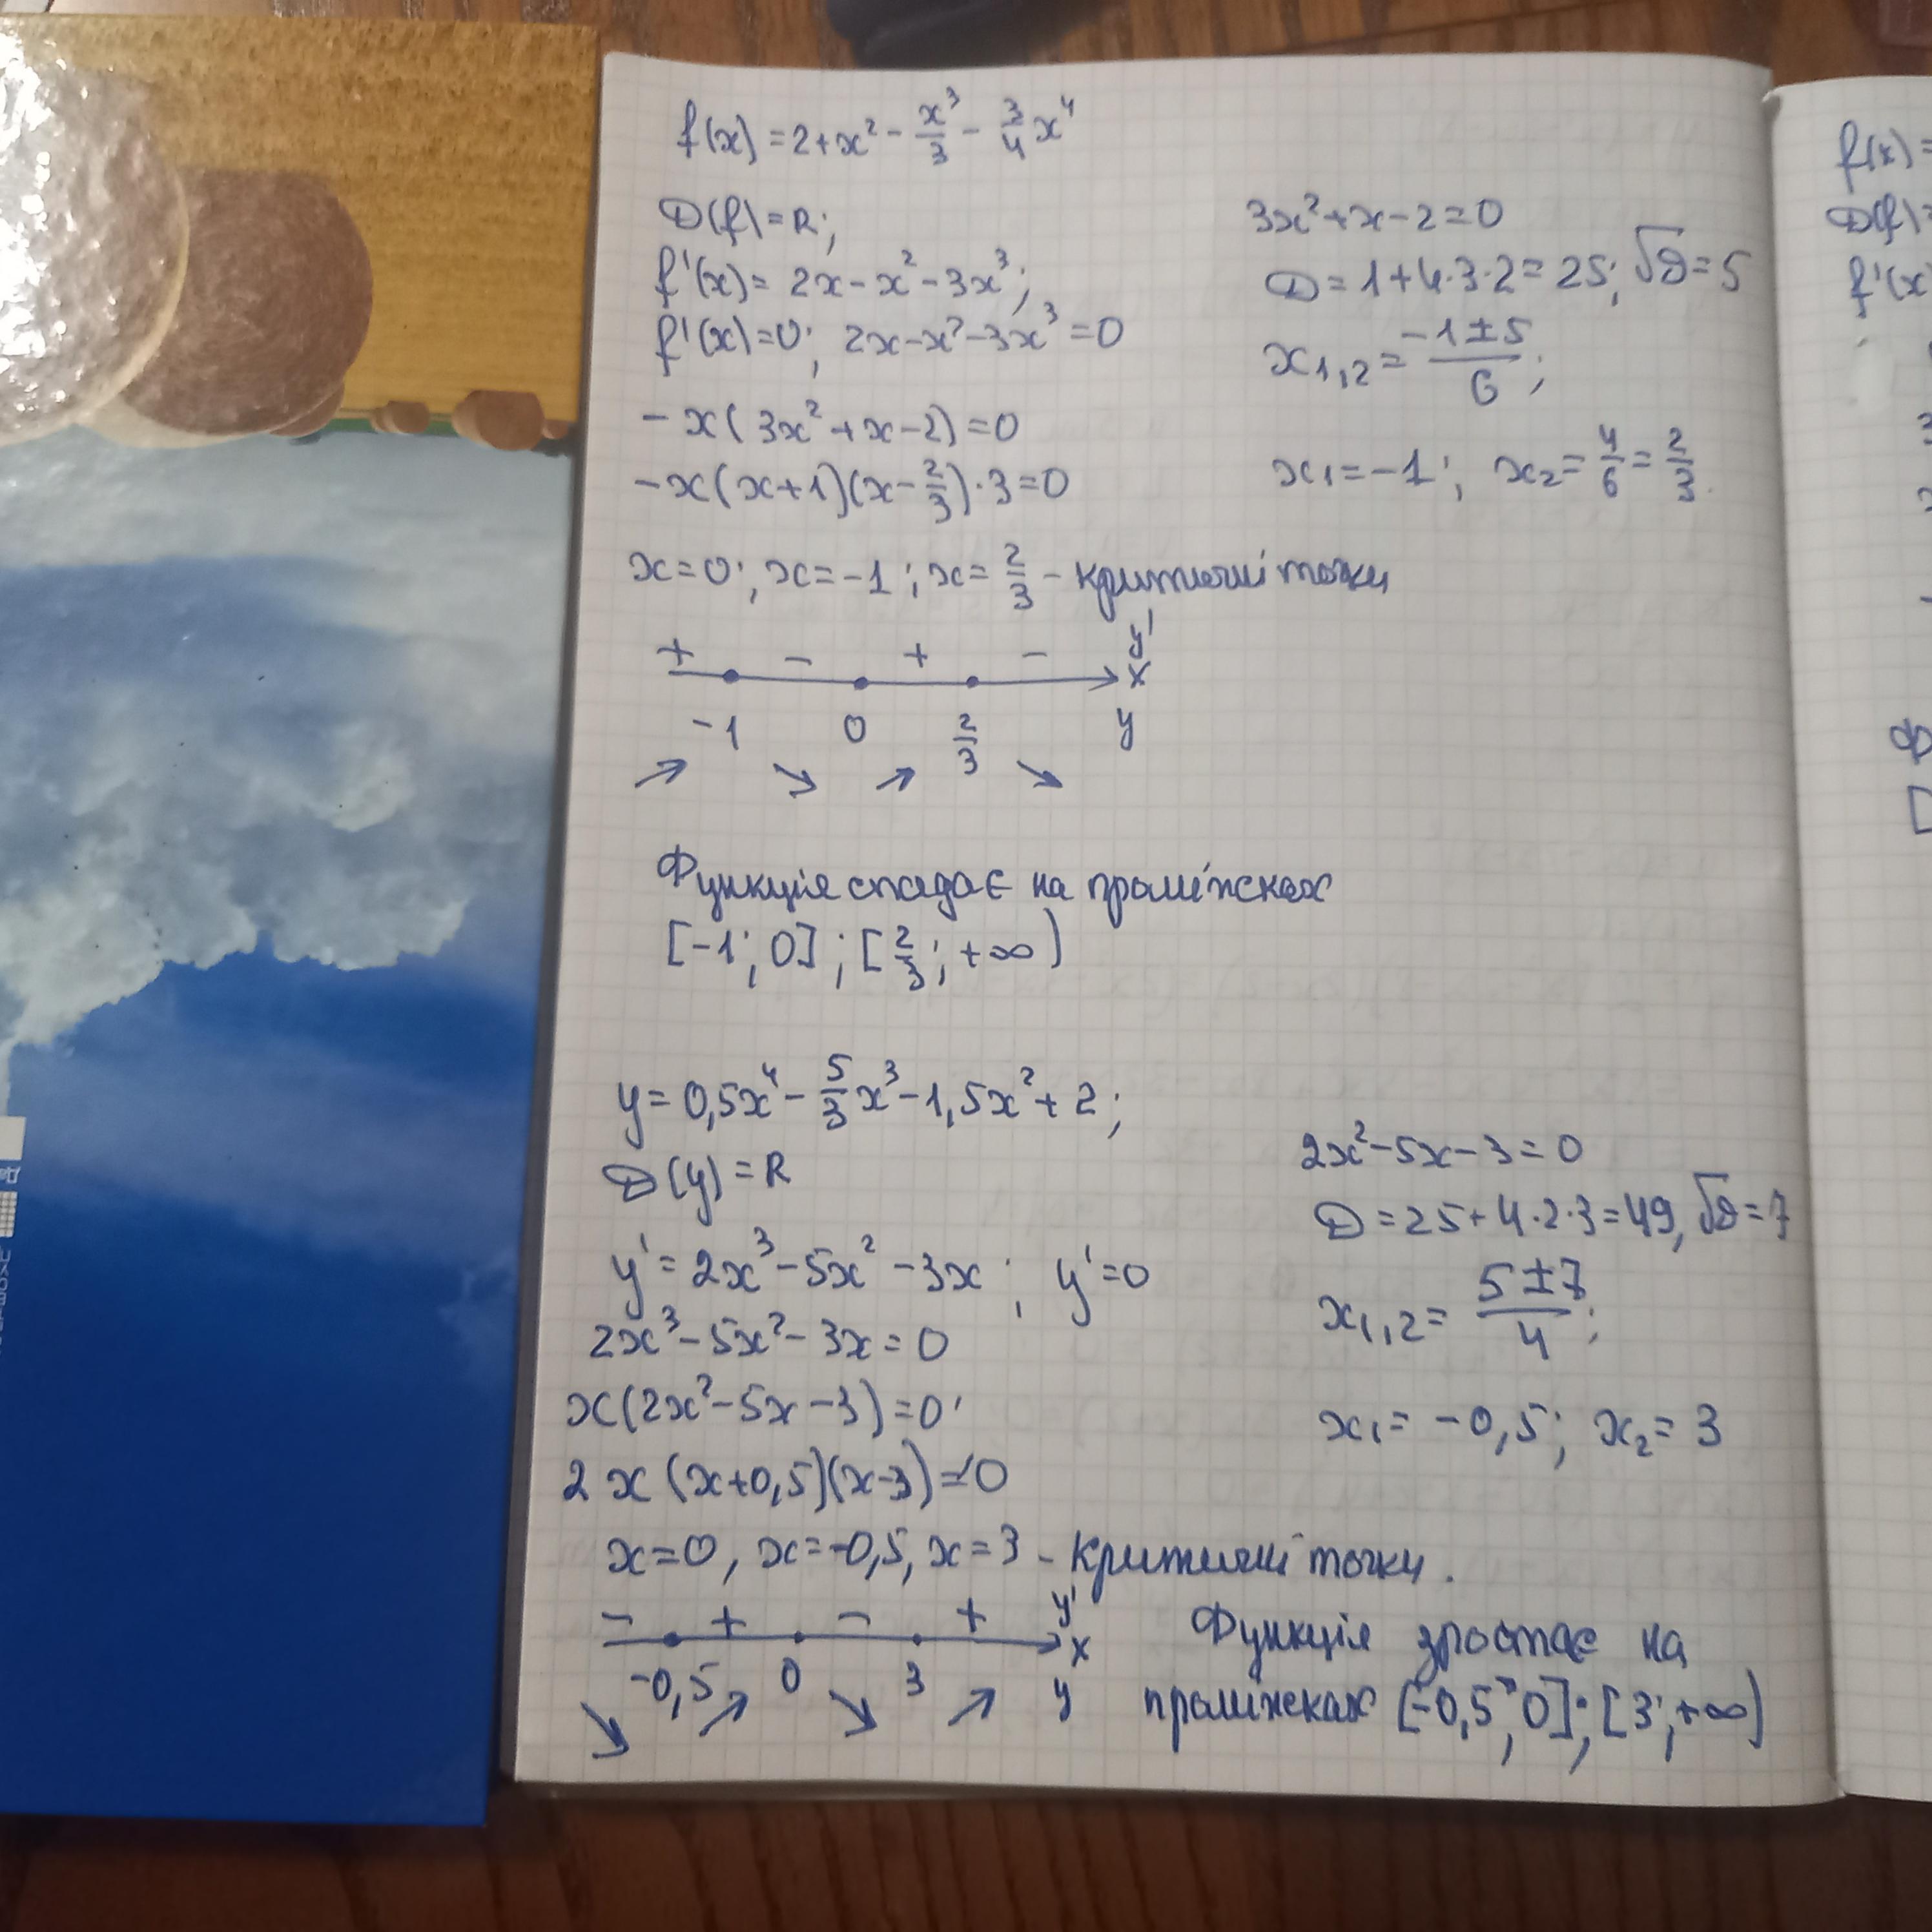 f(x) = 2 + x² - x³/3 - 3/4 x⁴
D(f) = R;
f'(x) = 2x - x² - 3x³;
f'(x) = 0; 2x - x² - 3x³ = 0
- x(3x² + x - 2) = 0
- x(x + 1)(x - 2/3) · 3 = 0
3x² + x - 2 = 0
D = 1 + 4 · 3 · 2 = 25; √D = 5
x₁,₂ = (-1 ± 5)/6;
x₁ = -1; x₂ = 4/6 = 2/3.
x = 0; x = -1; x = 2/3 - критичні точки
+ - + - y'
x
-1 0 2/3 y
↗ ↘ ↗ ↘
Функція спадає на проміжках
[-1; 0]; [2/3; +∞)
y = 0,5x⁴ - 5/3 x³ - 1,5x² + 2;
D(y) = R
y' = 2x³ - 5x² - 3x; y' = 0
2x³ - 5x² - 3x = 0
x(2x² - 5x - 3) = 0
2x(x + 0,5)(x - 3) = 0
2x² - 5x - 3 = 0
D = 25 + 4 · 2 · 3 = 49, √D = 7
x₁,₂ = (5 ± 7)/4;
x₁ = -0,5; x₂ = 3
x = 0, x = -0,5, x = 3 - критичні точки.
- + - + y'
x
-0,5 0 3 y
↘ ↗ ↘ ↗
Функція зростає на
проміжках [-0,5; 0]; [3; +∞)
f(x) =
D(f) =
f'(x